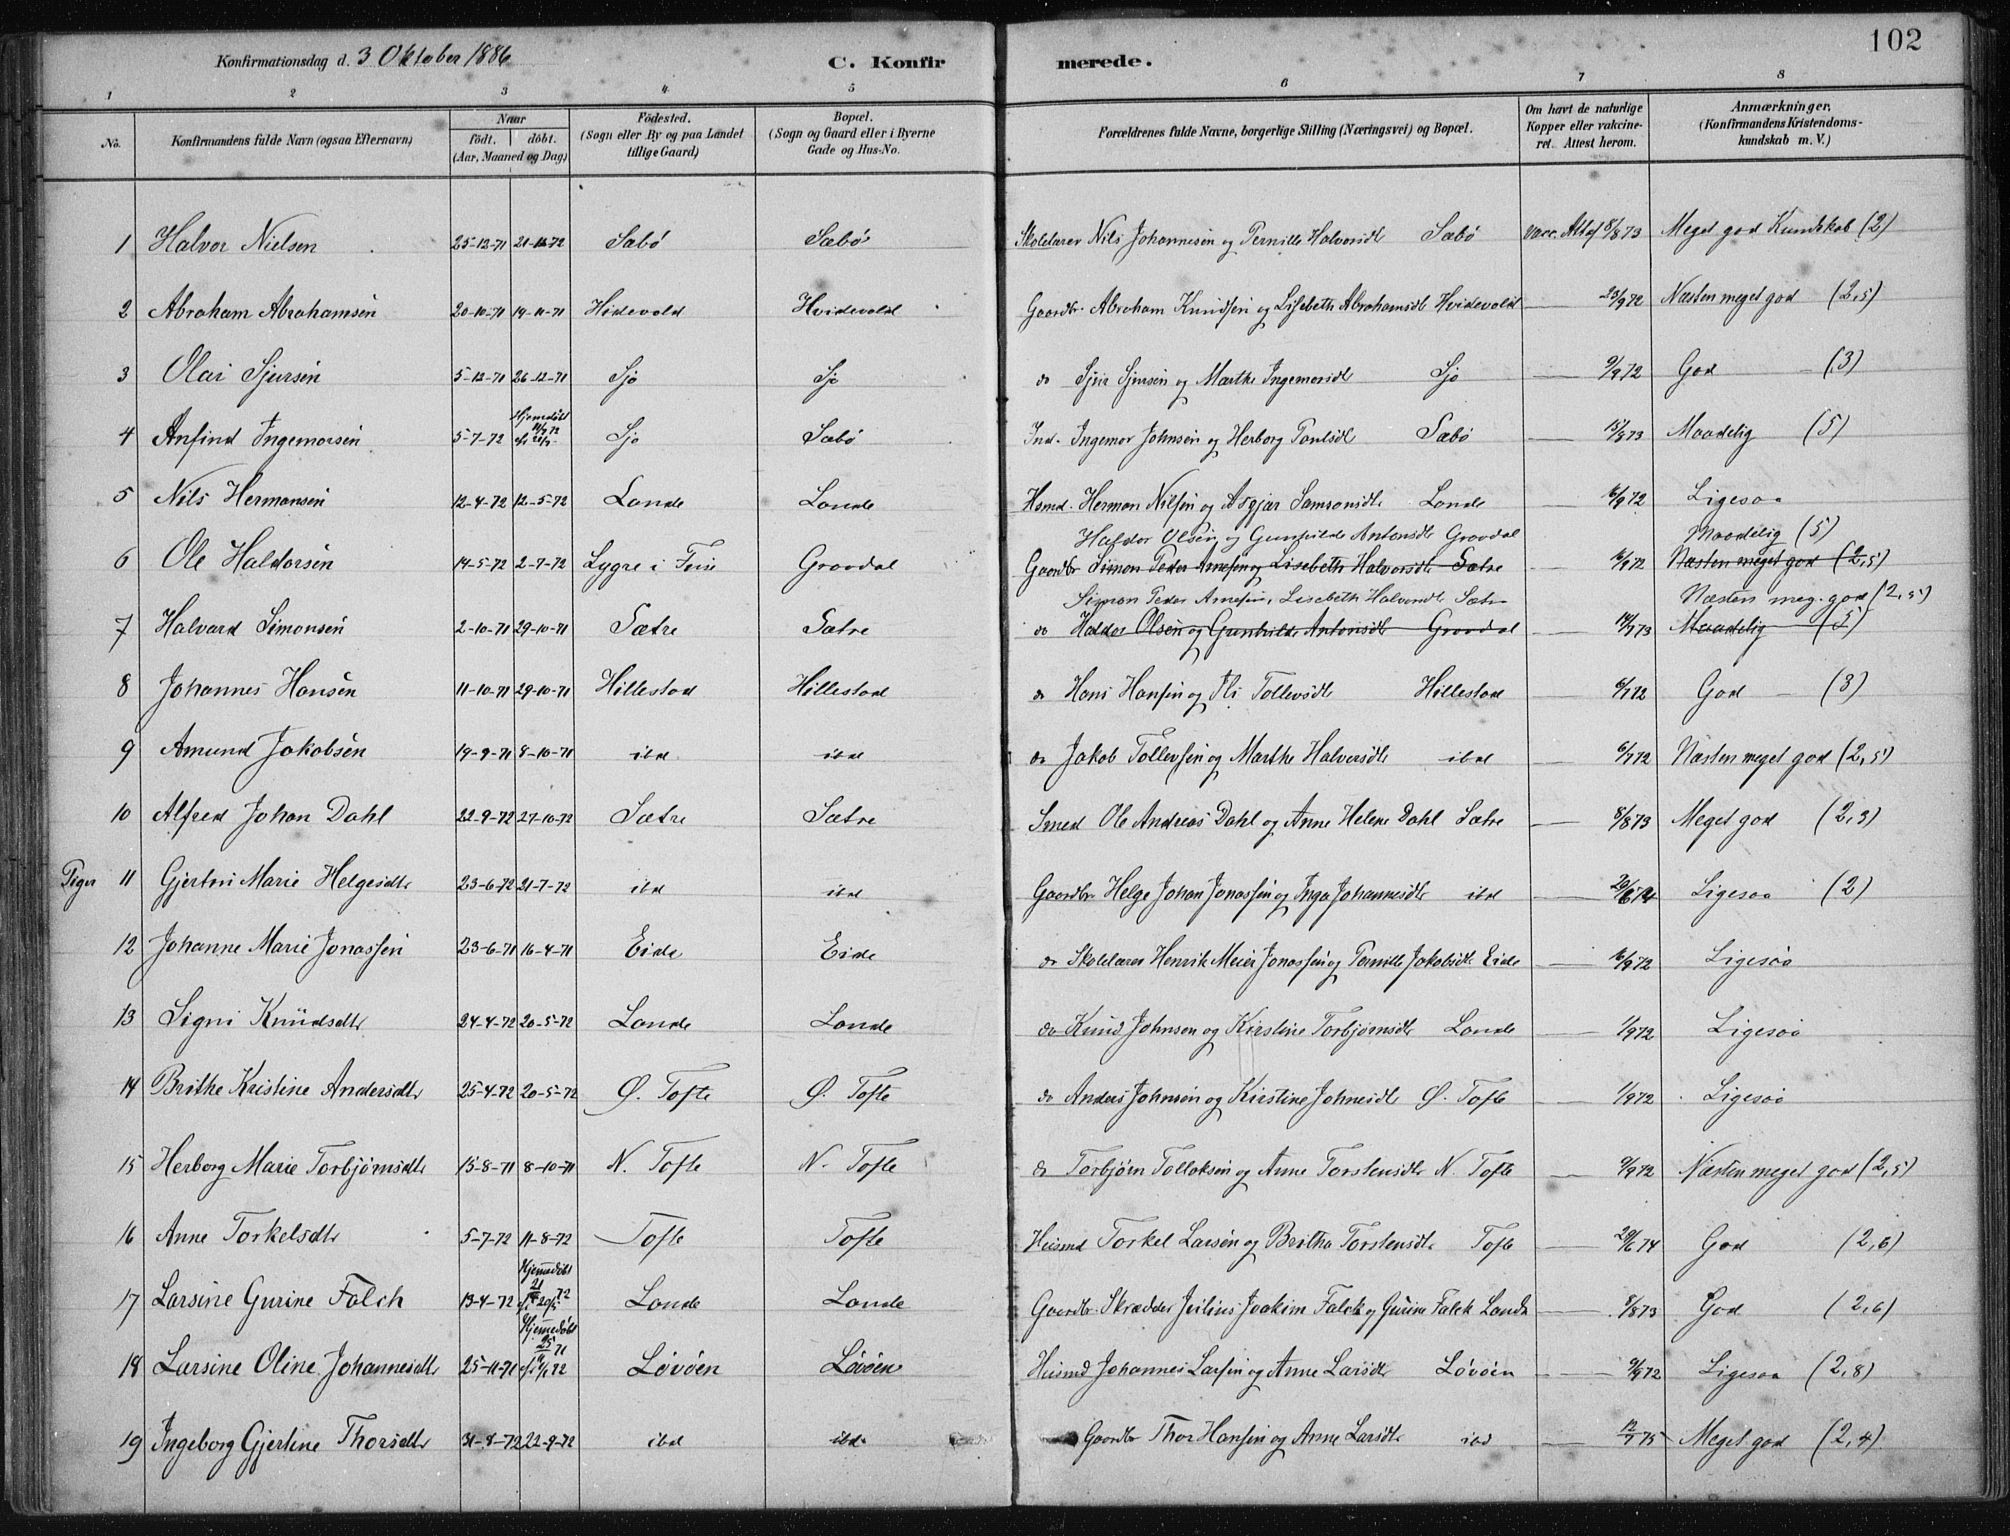 102
Konfirmationsdag d. 3 Oktober 1886
C. Konfirmerede.
1 2 3 4 5 6 7 8
No.
Konfirmandens fulde Navn (ogsaa Efternavn)
Naar
født. døbt.
(Aar, Maaned og Dag)
Fødested.
(Sogn eller By og paa Landet
tillige Gaard)
Bopæl.
(Sogn og Gaard eller i Byerne
Gade og Hus-No.
Forældrenes fulde Navne, borgerlige Stilling (Næringsvei) og Bopæl.
Om havt de naturlige
Kopper eller vakcine-
ret. Attest herom.
Anmærkninger.
(Konfirmandens Kristendoms-
kundskab m. V.)
1 Halvor Nielsen 25-12-71 21-1-72 Sæbø Sæbø Skolelærer Nils Johannesen og Pernille Halvorsdtr Sæbø vacc. Attest 8/8 73 Meget god Kundskab (2)
2 Abraham Abrahamsen 20-10-71 19-11-71 Hidevold Hvidevold Gaardbr. Abraham Knudsen og Lisebeth Abrahamsdtr Hvidevold — 23/9 72 Næsten meget god (2,5)
3 Olai Sjursen 5-12-71 26-12-71 Sjo Sjo do Sjur Sjursen og Marthe Ingemorsdtr Sjo — 9/9 72 God (3)
Hjemdøbt
4 Anfind Ingemorsen 5-7-72 Sjo Sæbø Ind. Ingemor Johnsen og Herborg Poulsdtr Sæbø — 15/8 73 Maadelig (5)
5 Nils Hermansen 12-4-72 12-5-72 Lande Lande Hsmd. Herman Nilsen og Asgjær Samsonsdtr Lande — 16/9 72 Ligesaa
Haldor Olsen og Gunhilde Antonsdtr Graadal Maadelig (5)
6 Ole Haldorsen 14-5-72 2-7-72 Lygre i Fuse Graadal Gaardbr Simon Peder Arnesen og Lisebeth Halvorsdtr Sætre — 16/9 72 Næsten meget god (2,5)
Simon Peder Arnesen, Lisebeth Halvorsdtr Sætre Næsten meg. god (2,5)
7 Halvard Simonsen 2-10-71 29-10-71 Sætre Sætre do Haldor Olsen og Gunhilde Antonsdtr Graadal — 14/7 73 Maadelig (5)
8 Johannes Hansen 11-10-71 29-10-71 Hillestad Hillestad do Hans Hansen og Eli Tollevsdtr Hillestad — 6/7 72 God — (3)
9 Amund Jakobsen 19-9-71 8-10-71 ibd ibd do Jakob Tollevsen og Marthe Halvorsdtr ibd — 6/7 72 Næsten meget god (2,5)
10 Alfred Johan Dahl 22-9-72 27-10-72 Sætre Sætre Smed Ole Andreas Dahl og Anne Helene Dahl Sætre — 8/8 73 Meget god (2,3)
Piger 11 Gjertrui Marie Helgesdtr 23-6-72 21-7-72 ibd ibd Gaardbr Helge Johan Jonassen og Inga Johannesdtr ibd — 20/6 74 Ligesaa (2)
12 Johanne Marie Jonassen 23-6-71 16-4-71 Eide Eide do Skolelærer Henrik Meier Jonassen og Pernille Jakobsdtr Eide — 16/9 72 Ligesaa
13 Signi Knudsdtr 24-4-72 20-5-72 Lande Lande do Knud Johnsen og Kirstine Torbjørnsdtr Lande — 1/9 72 Ligesaa
14 Brithe Kristine Andersdtr 25-4-72 20-5-72 Ø. Tofte Ø. Tofte do Anders Johnsen og Kirstine Johnsdtr Ø. Tofte — 1/9 72 Ligesaa
15 Herborg Marie Torbjørnsdtr 15-8-71 8-10-71 N. Tofte N. Tofte do Torbjørn Tollaksen og Anne Torstensdtr N. Tofte — 9/9 72 Næsten meget god (2,5)
16 Anne Torkelsdtr 5-7-72 11-8-72 Tofte Tofte Husmd Torkel Larsen og Britha Torstensdtr Tofte — 20/6 74 God (2,6)
Hjemmedøbt
17 Larsine Gurine Falch 13-4-72 Lande Lande Gaardbr. Skrædder Julius Joakim Falck og Gurine Falck Lande 8/8 73 God (2,6)
Hjemmedøbt
18 Larsine Oline Johannesdtr 25-11-71 Løvøen Løvøen Husmd Johannes Larsen og Anne Larsdtr Løvøen — 9/9 72 Ligesaa (2,8)
19 Ingeborg Gjertine Thorsdtr 31-8-72 22-9-72 ibd ibd Gaardbr Thor Hansen og Anne Larsdtr ibd — 12/7 75 Meget god (2,4)